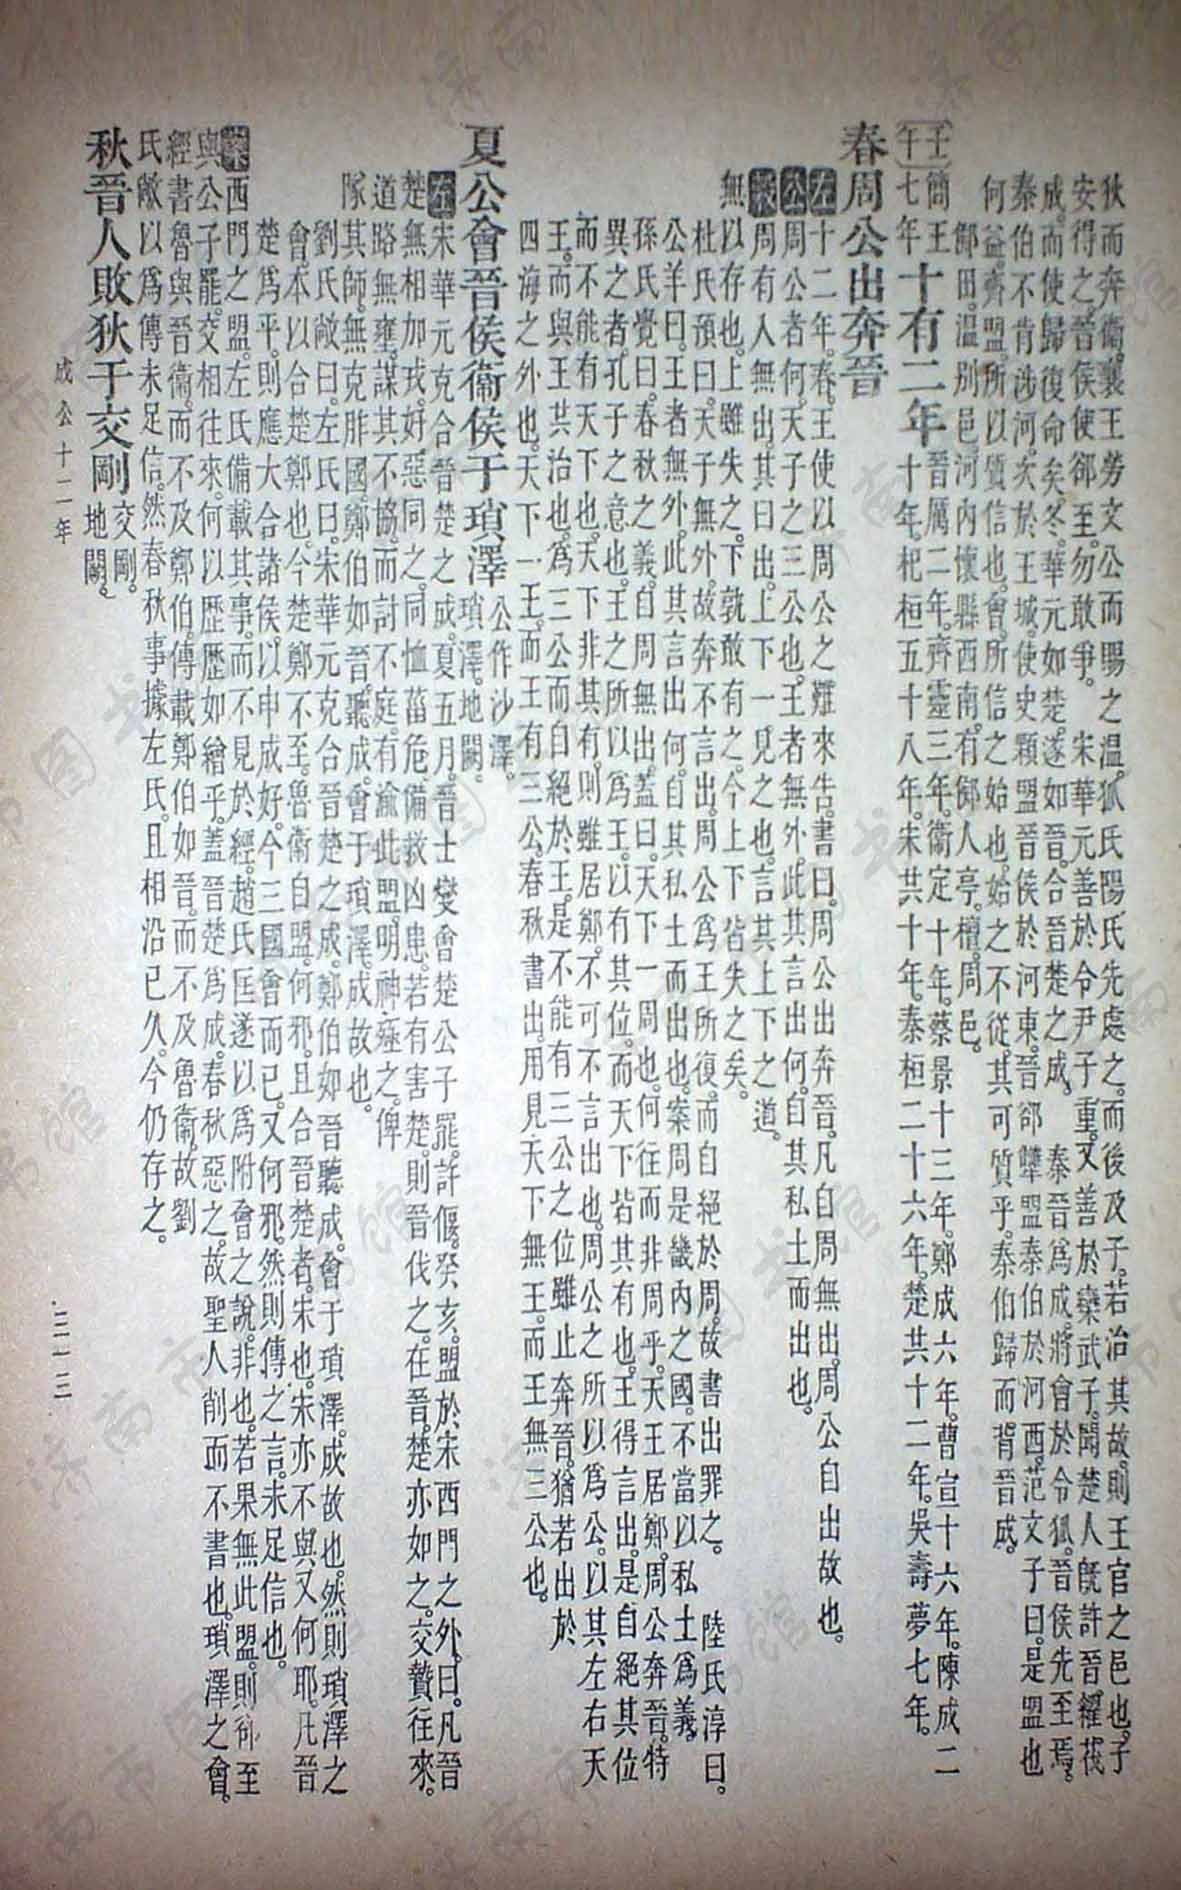 狄而奔衞襄王勞文公而賜之温狐氏陽氏先處之而後及子若治其故則王官之邑也子
安得之晉侯使郤至勿敢爭 宋華元善於令尹子重又善於欒武子聞楚人旣許晉糴茷
成而使歸復命矣冬華元如楚遂如晉合晉楚之成 秦晉爲成將會於令狐晉侯先至焉
秦伯不肯涉河次於王城使史顆盟晉侯於河東晉郤犫盟秦伯於河西范文子曰是盟也
何益齊盟所以質信也會所信之始也始之不從其可質乎秦伯歸而背晉成
鄇田温别邑河內懷縣西南有鄇人亭檀周邑
壬午
簡王七年
十有二年
晉厲二年齊靈三年衞定十年蔡景十三年鄭成六年曹宣十六年陳成二
十年杞桓五十八年宋共十年秦桓二十六年楚共十二年吳壽夢七年
春周公出奔晉
左十二年春王使以周公之難來告書曰周公出奔晉凡自周無出周公自出故也
公周公者何天子之三公也王者無外此其言出何自其私土而出也
穀周有人無出其曰出上下一見之也言其上下之道
無以存也上雖失之下孰敢有之今上下皆失之矣
杜氏預曰天子無外故奔不言出周公爲王所復而自絕於周故書出罪之 陸氏淳曰
公羊曰王者無外此其言出何自其私土而出也案周是畿內之國不當以私土爲義
孫氏覺曰春秋之義自周無出蓋曰天下一周也何往而非周乎天王居鄭周公奔晉特
異之者孔子之意也王之所以爲王以有其位而天下皆其有也王得言出是自絕其位
而不能有天下也天下非其有則雖居鄭不可不言出也周公之所以爲公以其左右天
王而與王共治也爲三公而自絕於王是不能有三公之位雖止奔晉猶若出於
四海之外也天下一王而王有三公春秋書出用見天下無王而王無三公也
夏公會晉侯衞侯于瑣澤
公作沙澤
瑣澤地闕
左宋華元克合晉楚之成夏五月晉士燮會楚公子罷許偃癸亥盟於宋西門之外曰凡晉
楚無相加戎好惡同之同恤菑危備救凶患若有害楚則晉伐之在晉楚亦如之交贄往來
道路無壅謀其不協而討不庭有渝此盟明神殛之俾
隊其師無克胙國鄭伯如晉聽成會于瑣澤成故也
劉氏敞曰左氏曰宋華元克合晉楚之成鄭伯如晉聽成會于瑣澤成故也然則瑣澤之
會本以合楚鄭也今楚鄭不至魯衞自盟何邪且合晉楚者宋也宋亦不與又何耶凡晉
楚爲平則應大合諸侯以申成好今三國會而已又何邪然則傳之言未足信也
案西門之盟左氏備載其事而不見於經趙氏匡遂以爲附會之說非也若果無此盟則郤至
與公子罷交相往來何以歷歷如繪乎蓋晉楚爲成春秋惡之故聖人削而不書也瑣澤之會
經書魯與晉衞而不及鄭伯傳載鄭伯如晉而不及魯衞故劉
氏敞以爲傳未足信然春秋事據左氏且相沿已久今仍存之
秋晉人敗狄于交剛
交剛
地闕
成公十二年
三一三